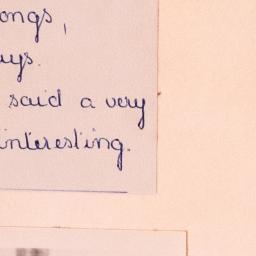 ongs,
ays.
said a very
interesting.